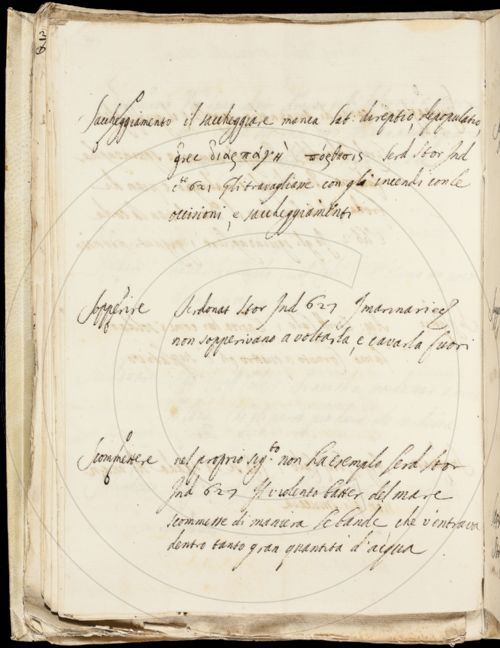 Saccheggiamento il saccheggiare manca lat. direptio, depopulatio,
grec διαρπάγὴ πόρθησις Serd Stor Ind
6. 621 gli travagliava con gli incendi con le
occisioni, e saccheggiamenti
Sopperire Serdonat Stor Ind 627 I marinari
non sopperivano a voltarla, e cavarla fuori
Scommettere nel proprio sig.to non ha esemplo Serd Stor
Ind 627 Il violento batter del mare
scommesse di maniera le bande che v'entrava
dentro tanto gran quantità d'acqua